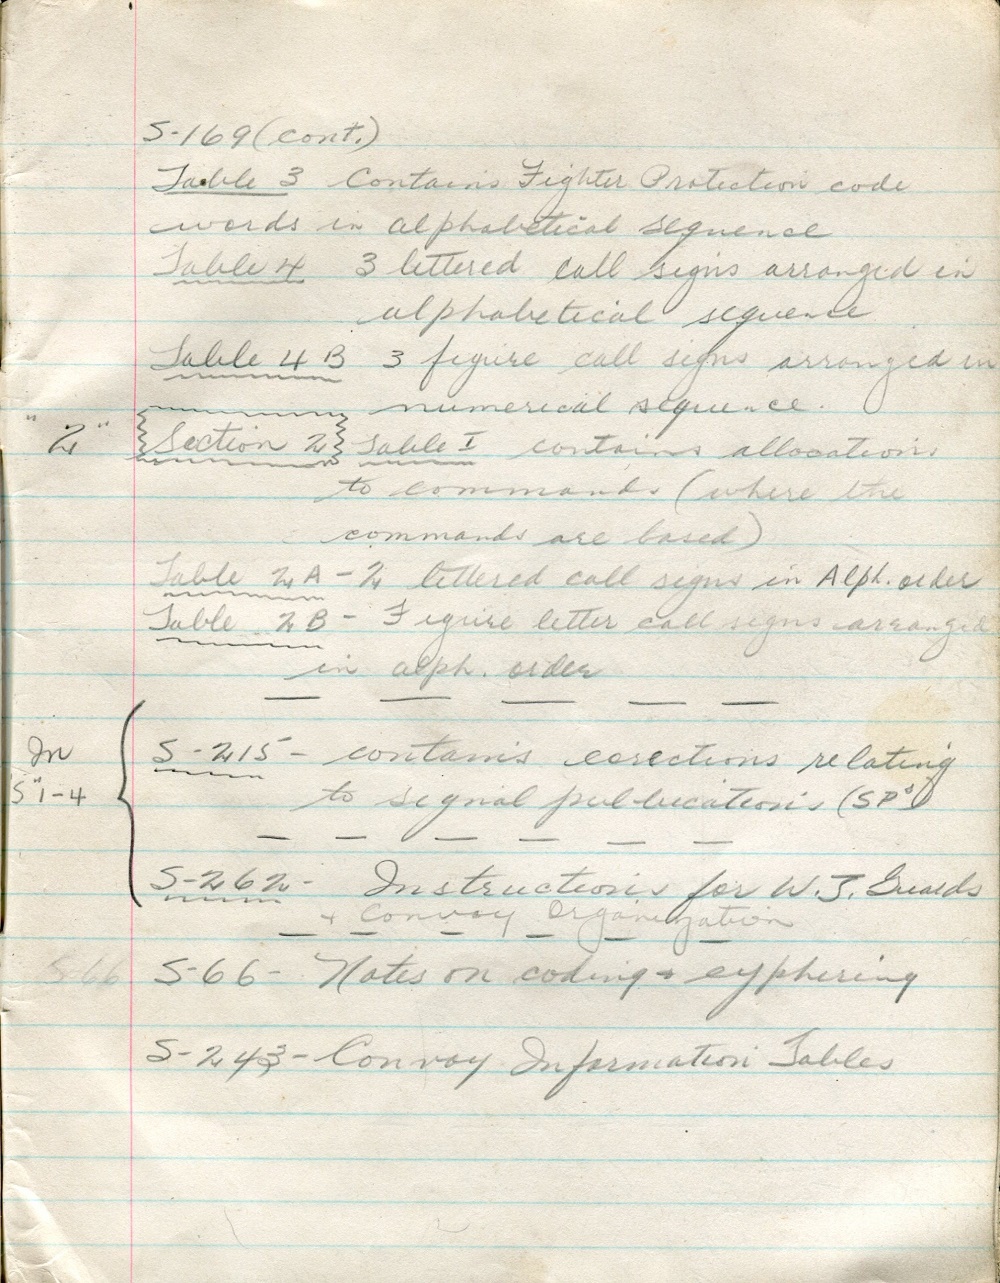 S-169 (cont.)
Table 3 Contains Fighter Protection code
words in alphabetical sequence
Table 4 3 lettered call signs arranged in
alphabetical sequence
Table 4 B 3 figure call signs arranged in
numerical sequence.
"2" Section 2 Table I contains allocations
to commands (where the
commands are based)
Table 2A - 2 lettered call signs in Alph. order
Table 2B - Figure letter call signs arranged
in alph. order
In S-215 - contains corections relating
"S" 1-4 to signal publications (SPs)
S-262 - Instructions for W.T. Guards
+ Convoy Organization
S66 S-66 - Notes on coding + cyphering
S-243 - Convoy Information Tables